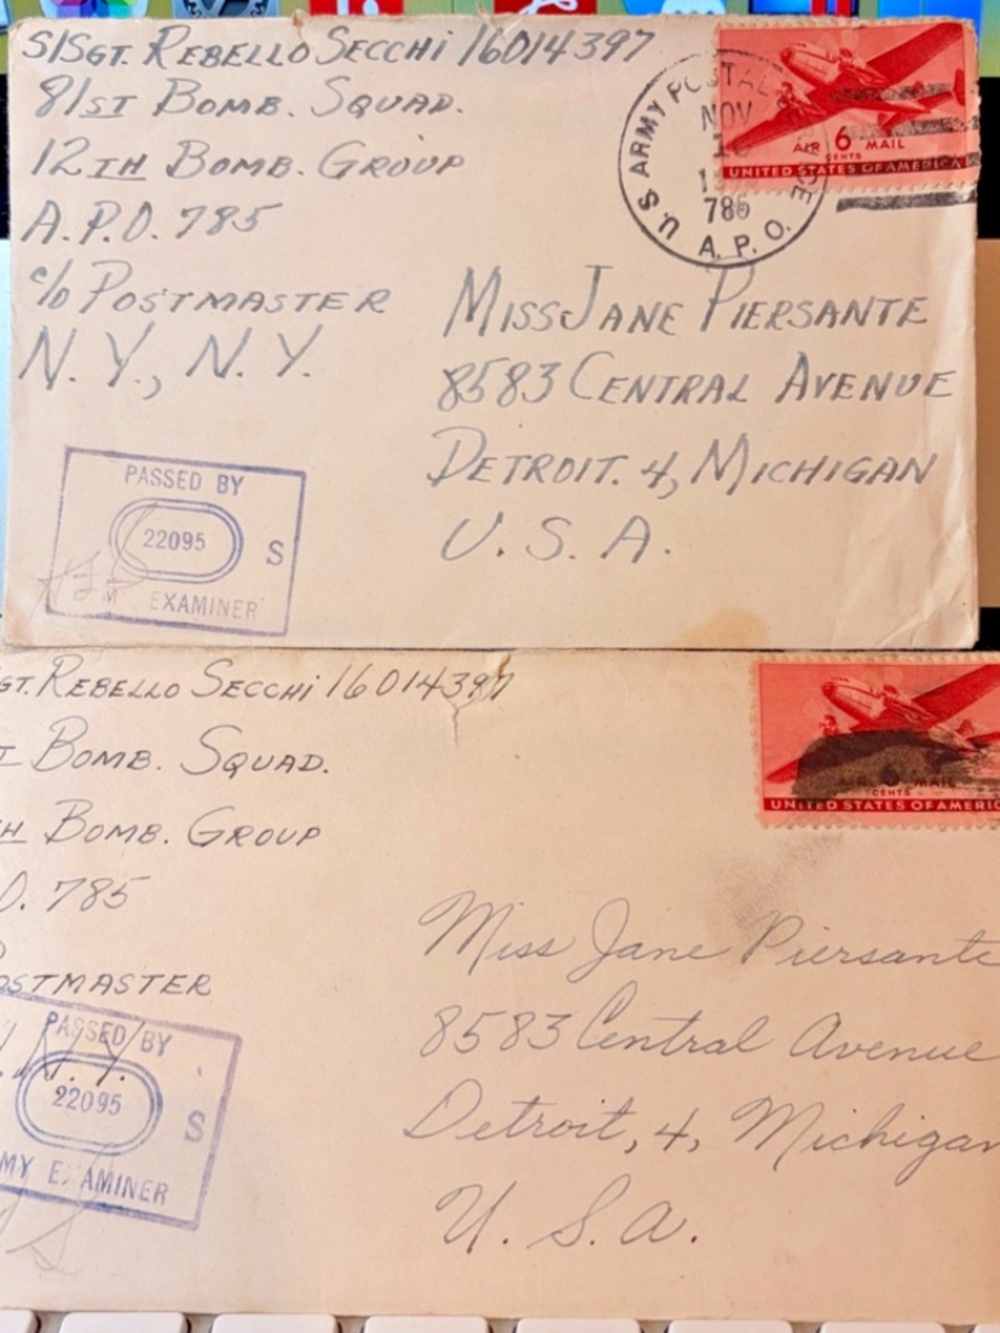 S/SGT. REBELLO SECCHI 16014397
81ST BOMB. SQUAD.
12TH BOMB. GROUP
A.P.O. 785
c/o POSTMASTER
N.Y., N.Y.
U.S. ARMY POSTAL
NOV
786
A.P.O.
AIR 6 MAIL
CENTS
UNITED STATES OF AMERICA
MISS JANE PIERSANTE
8583 CENTRAL AVENUE
DETROIT. 4, MICHIGAN
U. S. A.
PASSED BY
22095
S
EXAMINER
GT. REBELLO SECCHI 16014397
BOMB. SQUAD.
H BOMB. GROUP
O. 785
OSTMASTER
N.Y.
AIR 6 MAIL
CENTS
UNITED STATES OF AMERIC
Miss Jane Piersante
8583 Central Avenue
Detroit, 4, Michigan
U. S. A.
PASSED BY
22095
S
MY EXAMINER